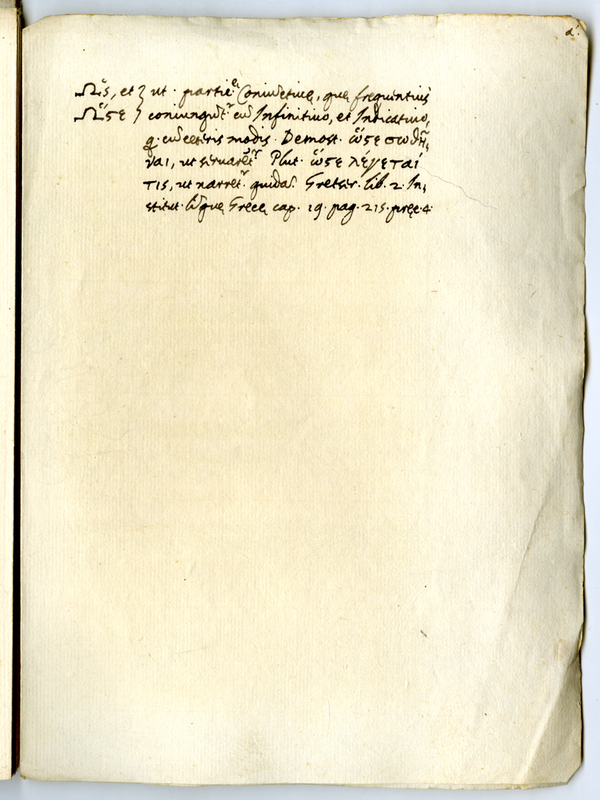 α.
Ὡς, et } ut. particę Coniūctiuę, quę frequentius
Ὥϛε } coniungūtr cū Infinitiuo, et Indicatiuo,
q. cū cęteris modis. Demost. ὥϛε σωθῆ,
ναι, ut seruaretr. Plut. ὥϛε λέγεταί
τις, ut narretr. quidā. Gretser. lib. 2. In,
stitut. līguę Gręcę cap. 19. pag. 215. pręc. 4.